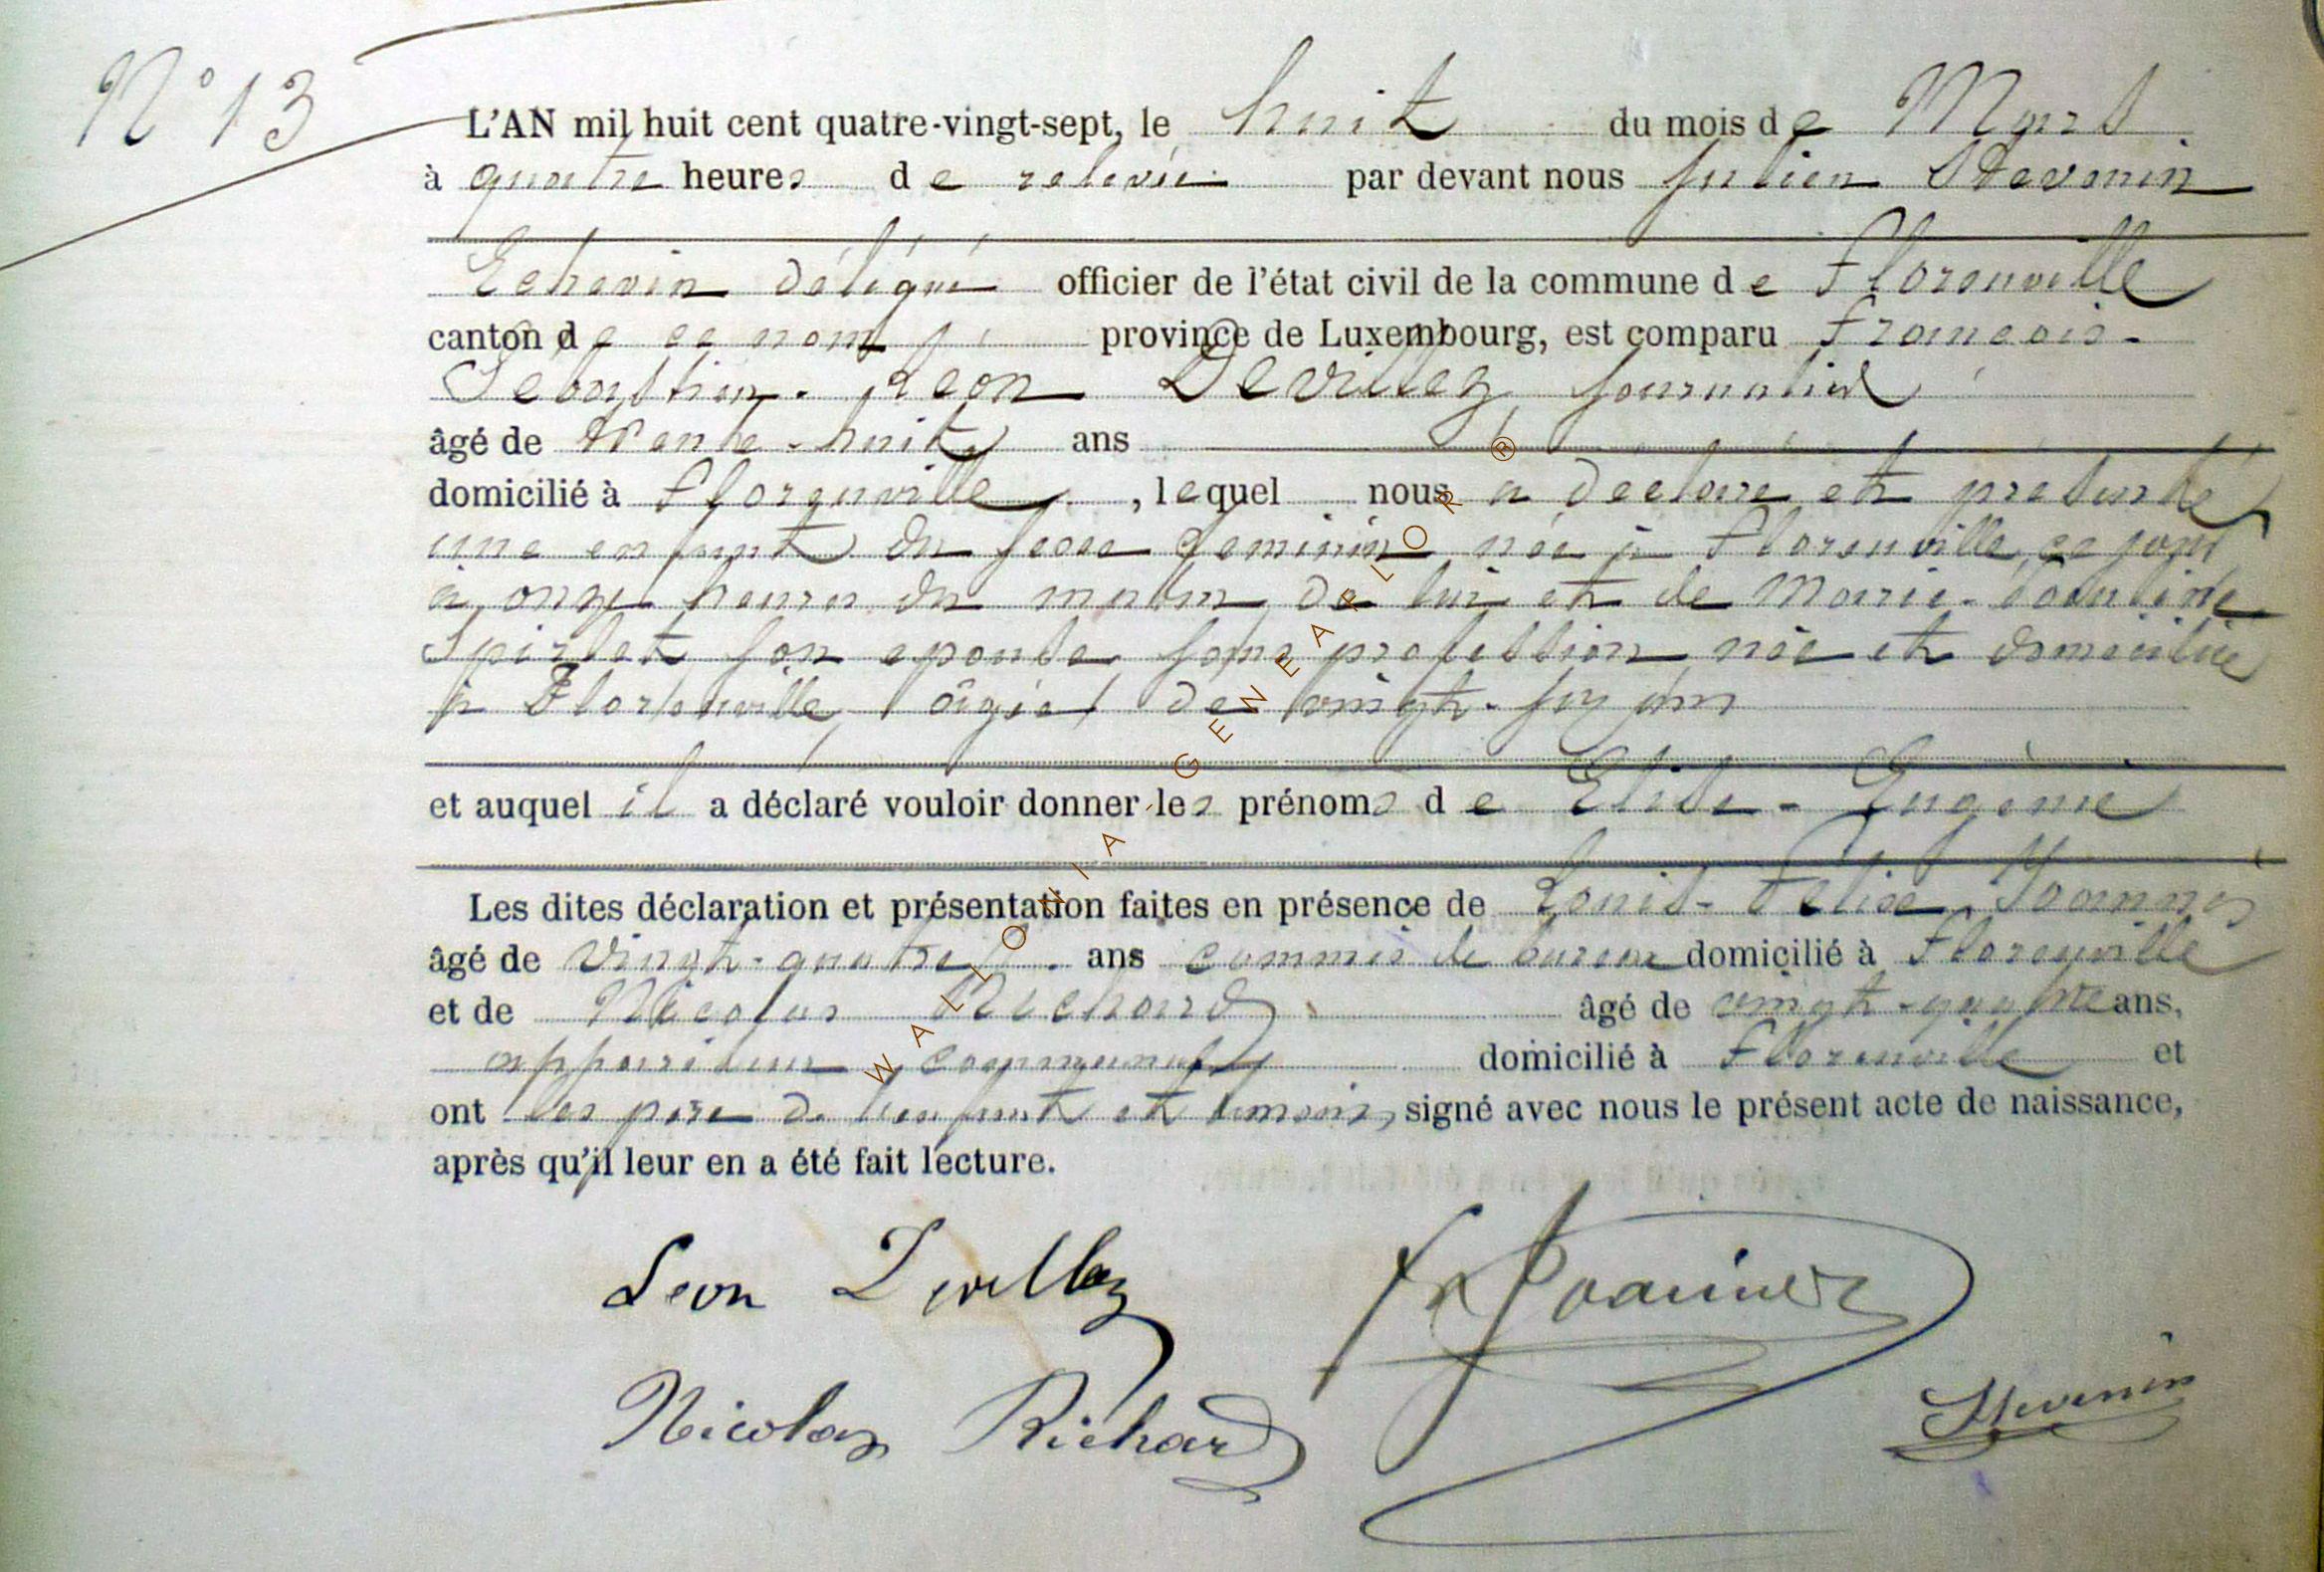 N° 13
L'AN mil huit cent quatre-vingt-sept, le huit du mois de Mars
à quatre heures de relevée par devant nous Julien Stevenin
Echevin délégué officier de l'état civil de la commune de Florenville
canton de ce nom province de Luxembourg, est comparu François-
Sébastien-Léon Devillez, journalier
âgé de trente-huit ans
domicilié à Florenville, lequel nous a déclaré et présenté
une enfant du sexe féminin née à Florenville, ce jour
à onze heures du matin, de lui et de Marie-Pauline
Spirlet son épouse sans profession née et domiciliée
à Florenville, âgée de vingt-six ans
et auquel il a déclaré vouloir donner les prénoms de Elise-Eugènie
Les dites déclaration et présentation faites en présence de Louis-Félix Joannes
âgé de vingt-quatre ans commis de bureau domicilié à Florenville
et de Nicolas Richard âgé de vingt-quatre ans,
appariteur communal domicilié à Florenville et
ont les père de l'enfant et témoins, signé avec nous le présent acte de naissance,
après qu'il leur en a été fait lecture.
Leon Devillez
Joannes
Nicolas Richard
Stevenin
WALLONIA GENEAFLOR ®